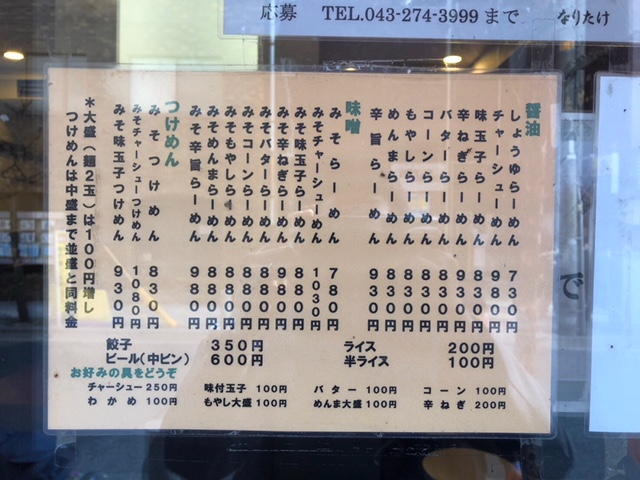 応募 TEL.043-274-3999まで なりたけ
醤油
しょうゆらーめん 730円
チャーシューめん 980円
味玉子らーめん 830円
辛ねぎらーめん 930円
バターらーめん 830円
コーンらーめん 830円
もやしらーめん 830円
めんまらーめん 830円
辛旨らーめん 930円
味噌
みそらーめん 780円
みそチャーシューめん 1030円
みそ味玉子らーめん 880円
みそ辛ねぎらーめん 980円
みそバターらーめん 880円
みそコーンらーめん 880円
みそもやしらーめん 880円
みそめんまらーめん 880円
みそ辛旨らーめん 980円
つけめん
みそつけめん 830円
みそチャーシューつけめん 1080円
みそ味玉子つけめん 930円
*大盛(麺2玉)は100円増し
つけめんは中盛まで並盛と同料金
餃子 350円 ライス 200円
ビール(中ビン) 600円 半ライス 100円
お好みの具をどうぞ
チャーシュー250円 味付玉子 100円 バター 100円 コーン 100円
わかめ 100円 もやし大盛 100円 めんま大盛 100円 辛ねぎ 200円
で